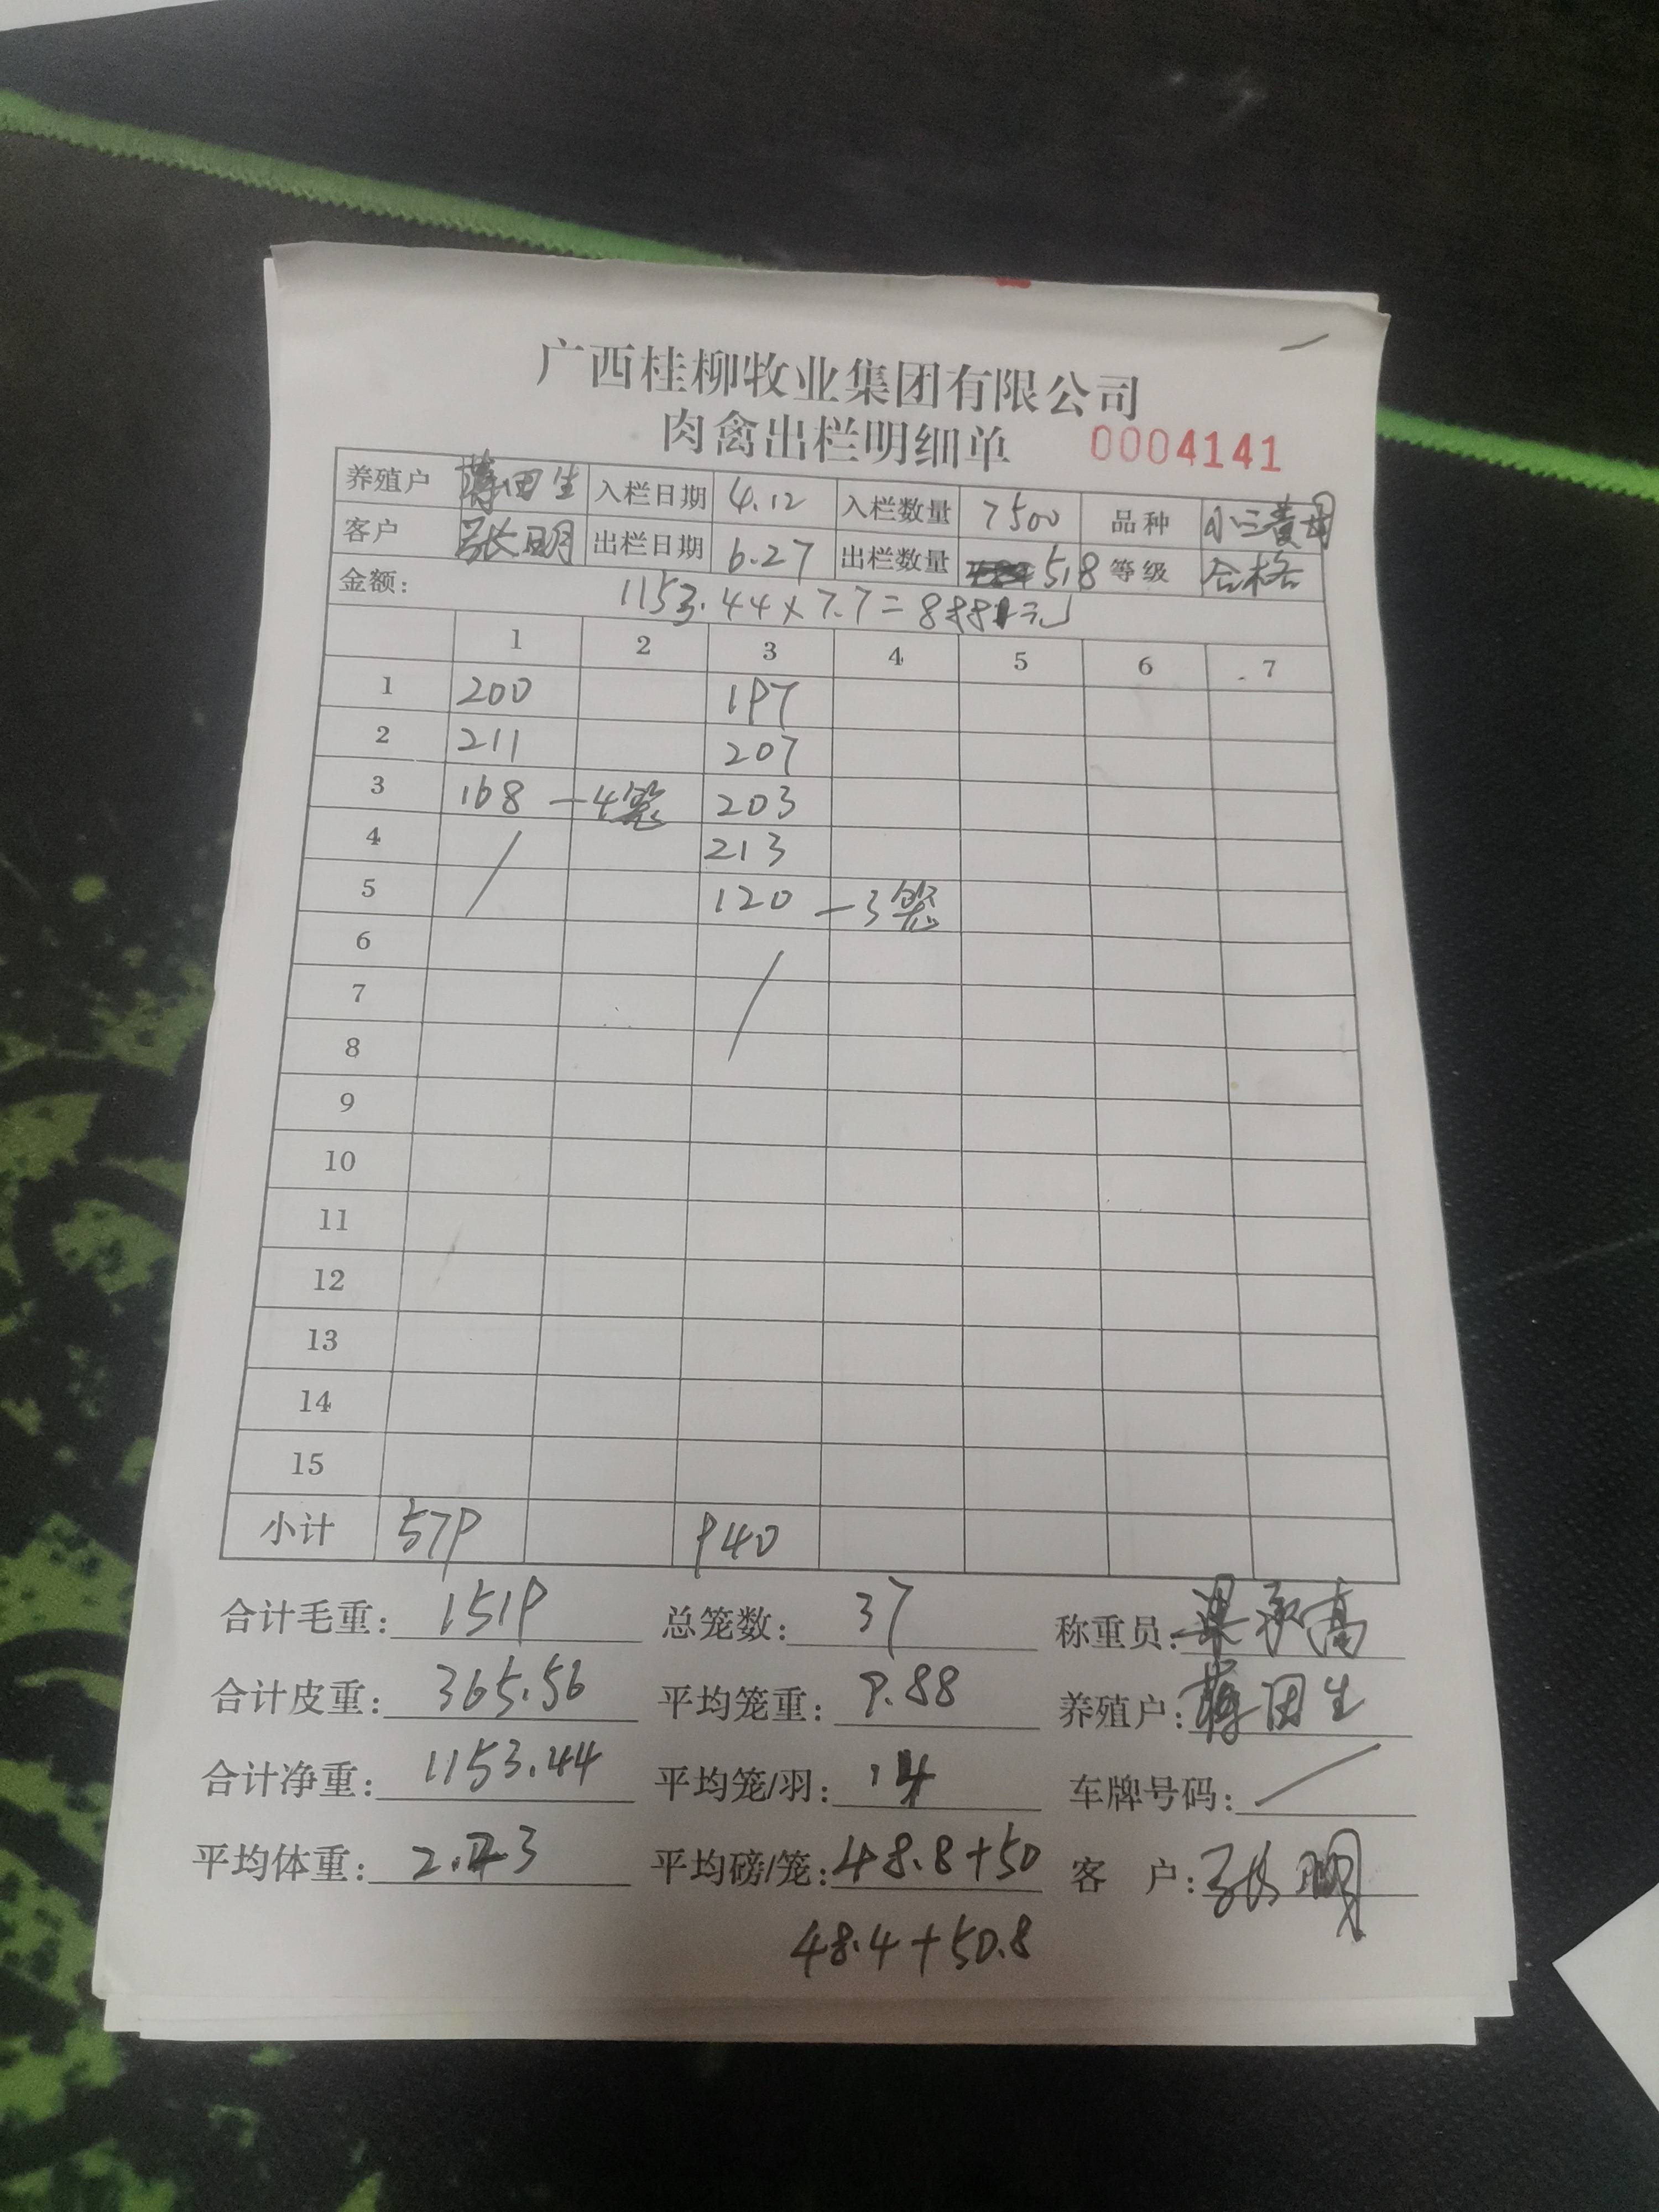 广西桂柳牧业集团有限公司
肉禽出栏明细单 0004141
养殖户 蒋田生 入栏日期 4.12 入栏数量 7500 品种 小三黄母
客户 张明 出栏日期 6.27 出栏数量 518 等级 合格
金额: 1153.44×7.7=8881元
1 2 3 4 5 6 7
1 200 197
2 211 207
3 168 -4笼 203
4 213
5 120 -3笼
6
7
8
9
10
11
12
13
14
15
小计 579 940
合计毛重: 1519 总笼数: 37 称重员: 梁承高
合计皮重: 365.56 平均笼重: 9.88 养殖户: 蒋田生
合计净重: 1153.44 平均笼/羽: 14 车牌号码:
平均体重: 2.23 平均磅/笼: 48.8+50 客 户: 张明
48.4+50.8